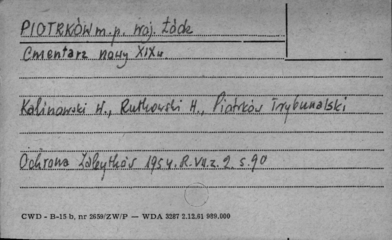 PIOTRKÓW m.p. woj. Łódź
Cmentarz nowy XIX w.
Kalinowski H., Rutkowski H., Piotrków Trybunalski
Ochrona Zabytków 1954. R. VII. z. 2. s. 90
CWD - B-15 b, nr 2659/ZW/P — WDA 3287 2.12.61 989.000